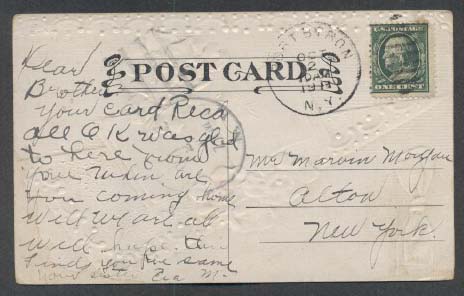 Dear
Brother
your Card Recd
all O K was glad
to here from
you when are
you coming home
well we are all
well hope this
finds you the same
your sister M.
POST CARD.
PORT BYRON
OCT
2
19
N.Y.
U.S. POSTAGE
ONE CENT
Mr Marvin Morgan
Alton
New York.